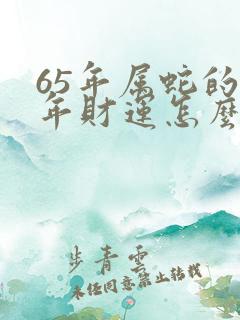 65年属蛇的
年财运怎麽
步青云
未经同意禁止转载